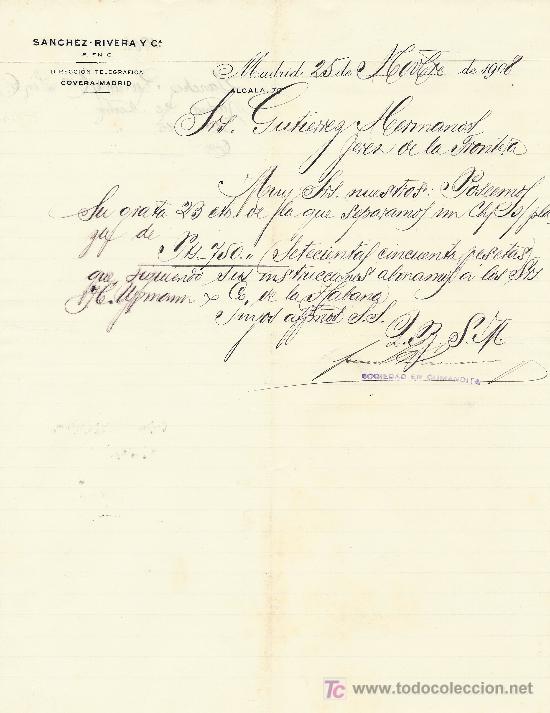 SANCHEZ-RIVERA Y Cª
S EN C
DIRECCION TELEGRAFICA
COVERA-MADRID
Madrid 25 de Novbre de 1908
ALCALA, 70
Srs. Gutierrez Hermanos
Jerez de la Frontera
Muy Srs. nuestros: Poseemos
Su grata 23 de la que separamos un
de
Pts 750,, (Setecientas cincuenta pesetas)
que siguiendo sus instrucciones abonamos a los Srs
H. Upmann y Cª, de la Habana
Suyos affmos S.S.
Q.B.S.M.
SOCIEDAD EN COMANDITA
TC www.todocoleccion.net